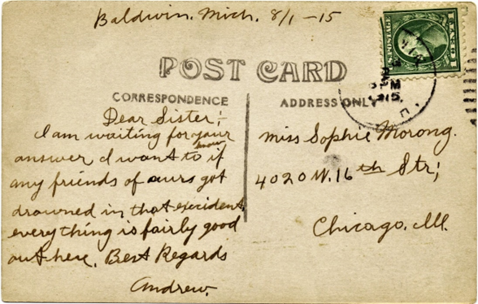 Baldwin. Mich. 8/1-15
POST CARD
CORRESPONDENCE
ADDRESS ONLY
Dear Sister;
I am waiting for your
answer I want to know if
any friends of ours got
drowned in that excident,
everything is fairly good
out here, Best Regards
Andrew.
Miss Sophie Morong.
4020 W. 16th Str;
Chicago. Ill.
U.S. POSTAGE
1 CENT 1
PM